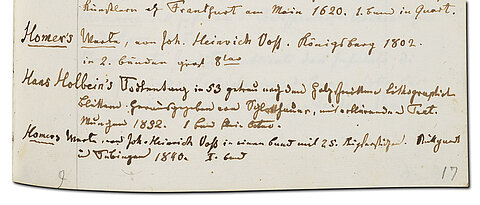 Künstlern ef Frankfurt am Main 1620. 1. bund in Quart.
Homer's Werke, von Joh. Heinrich Voss. Königsberg 1802.
in 2. bänden groß 8tav
Hans Holbein's Todtentanz in 53 getreu nach den Holzschnitten lithographirten
Blättern. Herausgegeben von Schlotthauer, mit erklärendem Text.
München 1832. 1 bund klein Octav.
Homers Werke, von Joh. Heinrich Voß in einem bund mit 25. Kupferstichen. Stuttgart
u Tübingen 1840. I. bund
17